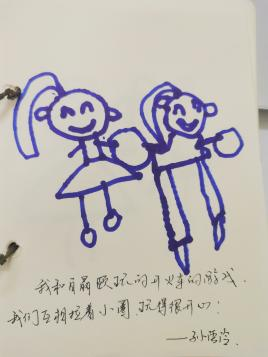 我和玩的开火车的游戏.
我们互相拉着小圈,玩得很开心!
——孙